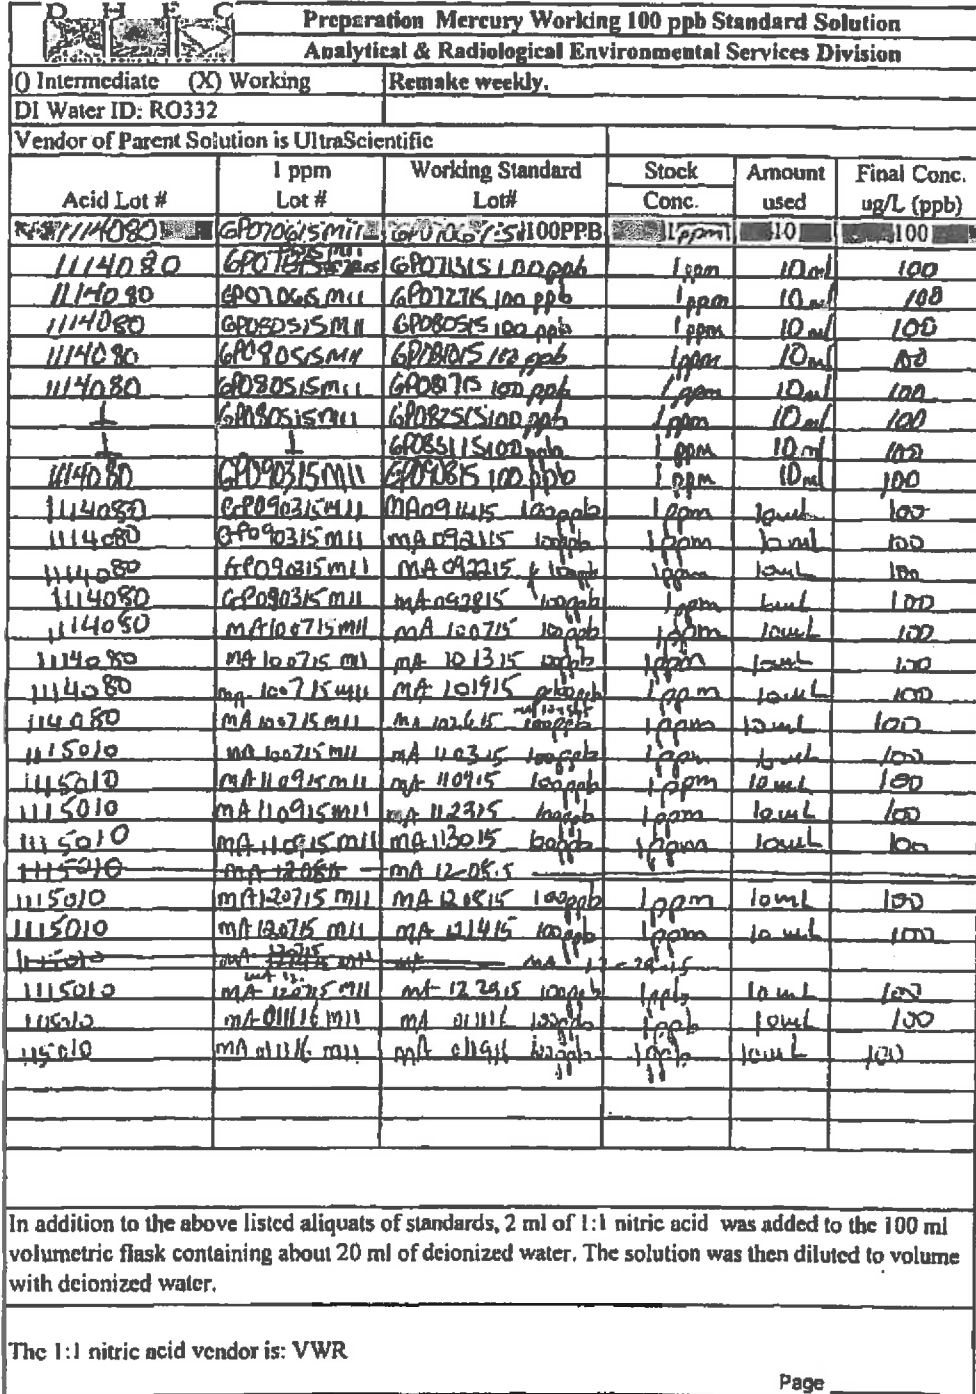 D H E C
Preparation Mercury Working 100 ppb Standard Solution
Analytical & Radiological Environmental Services Division
() Intermediate (X) Working Remake weekly.
DI Water ID: RO332
Vendor of Parent Solution is UltraScientific
Acid Lot # 1 ppm Lot # Working Standard Lot# Stock Conc. Amount used Final Conc. ug/L (ppb)
1114080 GP070615MII 100PPB 1ppm 10 100
1114080 GP071315 100ppb 1ppm 10ml 100
1114080 GP070615MII GP072715 100 ppb 1ppm 10ml 100
1114080 GP080515MII GP080515 100 ppb 1ppm 10ml 100
1114080 GP080515MII GP081015 100 ppb 1ppm 10ml 100
1114080 GP080515MII GP081715 100 ppb 1ppm 10ml 100
↓ GP080515MII GP082515 100 ppb 1ppm 10ml 100
↓ ↓ GP083115 100 ppb 1ppm 10ml 100
1114080 GP090315MII GP090815 100 ppb 1ppm 10ml 100
1114080 GP090315MII MA091415 100ppb 1ppm 10mL 100
1114080 GP090315MII MA092115 100ppb 1ppm 10mL 100
1114080 GP090315MII MA092215 100ppb 1ppm 10mL 100
1114080 GP090315MII MA092815 100ppb 1ppm 10mL 100
1114080 MA100715MII MA 100715 100ppb 1ppm 10mL 100
1114080 MA 100715 MII MA 101315 100ppb 1ppm 10mL 100
1114080 MA 100715 MII MA 101915 100ppb 1ppm 10mL 100
114080 MA 100715 MII MA 102615 100ppb 1ppm 10mL 100
1115010 MA 100715 MII MA 110315 100ppb 1ppm 10mL 100
1115010 MA110915MII MA 110915 100ppb 1ppm 10mL 100
1115010 MA110915MII MA 112315 100ppb 1ppm 10mL 100
1115010 MA110915MII MA113015 100ppb 1ppm 10mL 100
1115010 MA 12-08-15
1115010 MA120715 MII MA 120815 100ppb 1ppm 10mL 100
1115010 MA120715 MII MA 121415 100ppb 1ppm 10mL 100
1115010 MA
1115010 MA 120715 MII MA 122915 100ppb 1ppb 10mL 100
1115010 MA 011116 MII MA 011116 100ppb 1ppb 10mL 100
115010 MA 011116 MII MA 011916 100ppb 1ppb 10mL 100
In addition to the above listed aliquats of standards, 2 ml of 1:1 nitric acid was added to the 100 ml
volumetric flask containing about 20 ml of deionized water. The solution was then diluted to volume
with deionized water.
The 1:1 nitric acid vendor is: VWR
Page